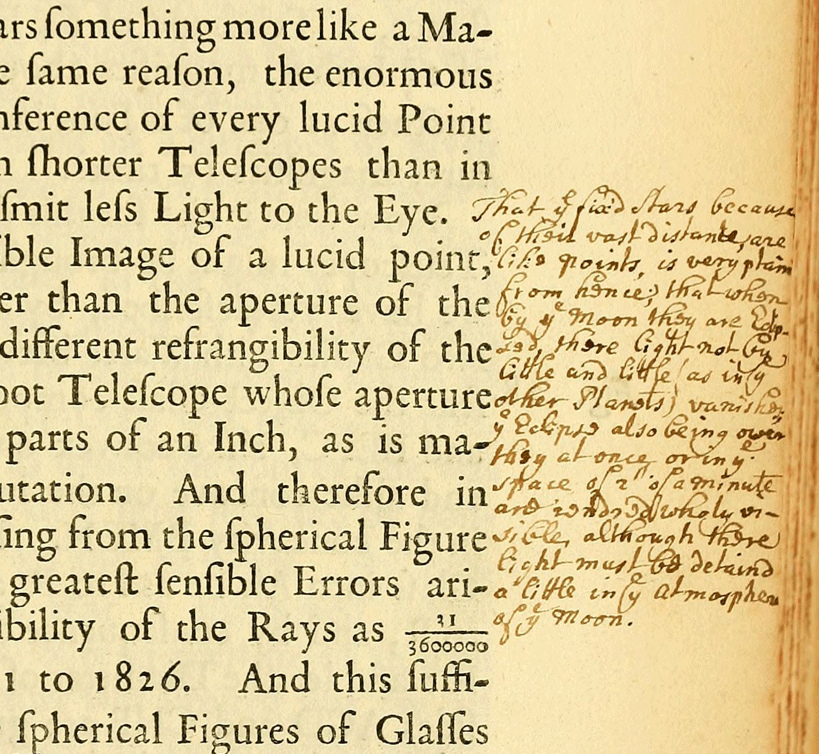 ars ſomething more like a Ma-
e ſame reaſon, the enormous
nference of every lucid Point
n ſhorter Teleſcopes than in
ſmit leſs Light to the Eye.
ible Image of a lucid point,
er than the aperture of the
different refrangibility of the
oot Teleſcope whoſe aperture
parts of an Inch, as is ma-
utation. And therefore in
ſing from the ſpherical Figure
greateſt ſenſible Errors ari-
ibility of the Rays as 31/3600000
1 to 1826. And this ſuffi-
ſpherical Figures of Glaſſes
That yͤ fixd Stars because
of their vast distance, are
like points, is very plain
from hence; that when
by yͤ Moon they are Eclip-
sed, there light not by
little and little (as in yͤ
other Planets) vanishes,
yͤ Eclipse also being over
they at once, or in yͤ
space of 2″ of a minute
are rendred wholy vi-
sible, although there
light must be detaind
a little in yͤ Atmosphere
of yͤ Moon.